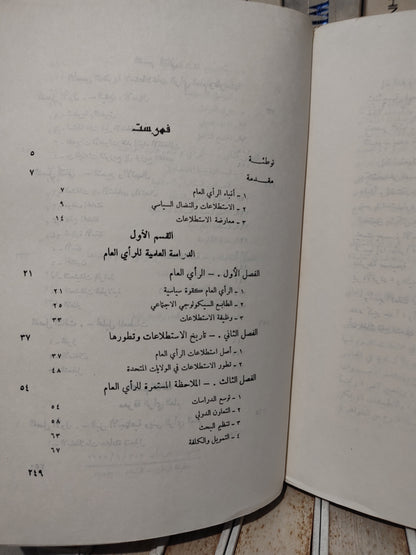 فهرست
توطئة ٥
مقدمة ٧
١ – أنباء الرأي العام ٧
٢ – الاستطلاعات والنضال السياسي ٩
٣ – معارضة الاستطلاعات ١٤
القسم الأول
الدراسة العلمية للرأي العام
الفصل الأول . – الرأي العام ٢١
١ – الرأي العام كقوة سياسية ٢١
٢ – الطابع السيكولوجي الاجتماعي ٢٥
٣ – وظيفة الاستطلاعات ٣٣
الفصل الثاني . – تاريخ الاستطلاعات وتطورها ٣٧
١ – أصل استطلاعات الرأي العام ٣٧
٢ – تطور الاستطلاعات في الولايات المتحدة ٤٨
الفصل الثالث . – الملاحظة المستمرة للرأي العام ٥٤
١ – توسع الدراسات ٥٤
٢ – التعاون الدولي ٥٨
٣ – تنظيم البحث ٦٣
٤ – التمويل والكلفة ٦٧
٢٤٩